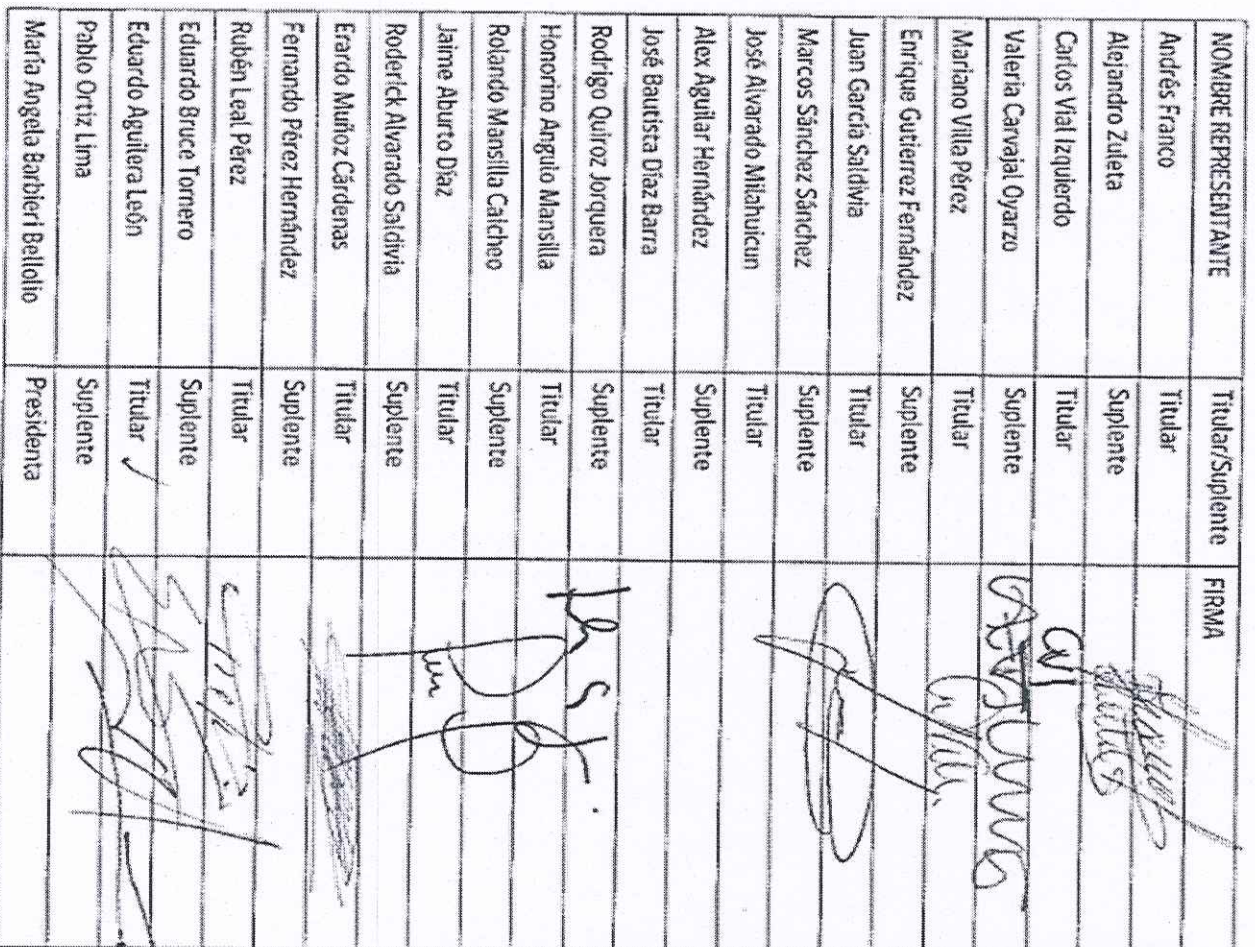 NOMBRE REPRESENTANTE Titular/Suplente FIRMA
Andrés Franco Titular
Alejandro Zuleta Suplente
Carlos Vial Izquierdo Titular
Valeria Carvajal Oyarzo Suplente
Mariano Villa Pérez Titular
Enrique Gutierrez Fernández Suplente
Juan García Saldivia Titular
Marcos Sánchez Sánchez Suplente
José Alvarado Milahuicun Titular
Alex Aguilar Hernández Suplente
José Bautista Díaz Barra Titular
Rodrigo Quiroz Jorquera Suplente
Honorino Angulo Mansilla Titular
Rolando Mansilla Calcheo Suplente
Jaime Aburto Díaz Titular
Roderick Alvarado Saldivia Suplente
Erardo Muñoz Cárdenas Titular
Fernando Pérez Hernández Suplente
Rubén Leal Pérez Titular
Eduardo Bruce Tornero Suplente
Eduardo Aguilera León Titular
Pablo Ortiz Lima Suplente
María Angela Barbieri Bellolio Presidenta